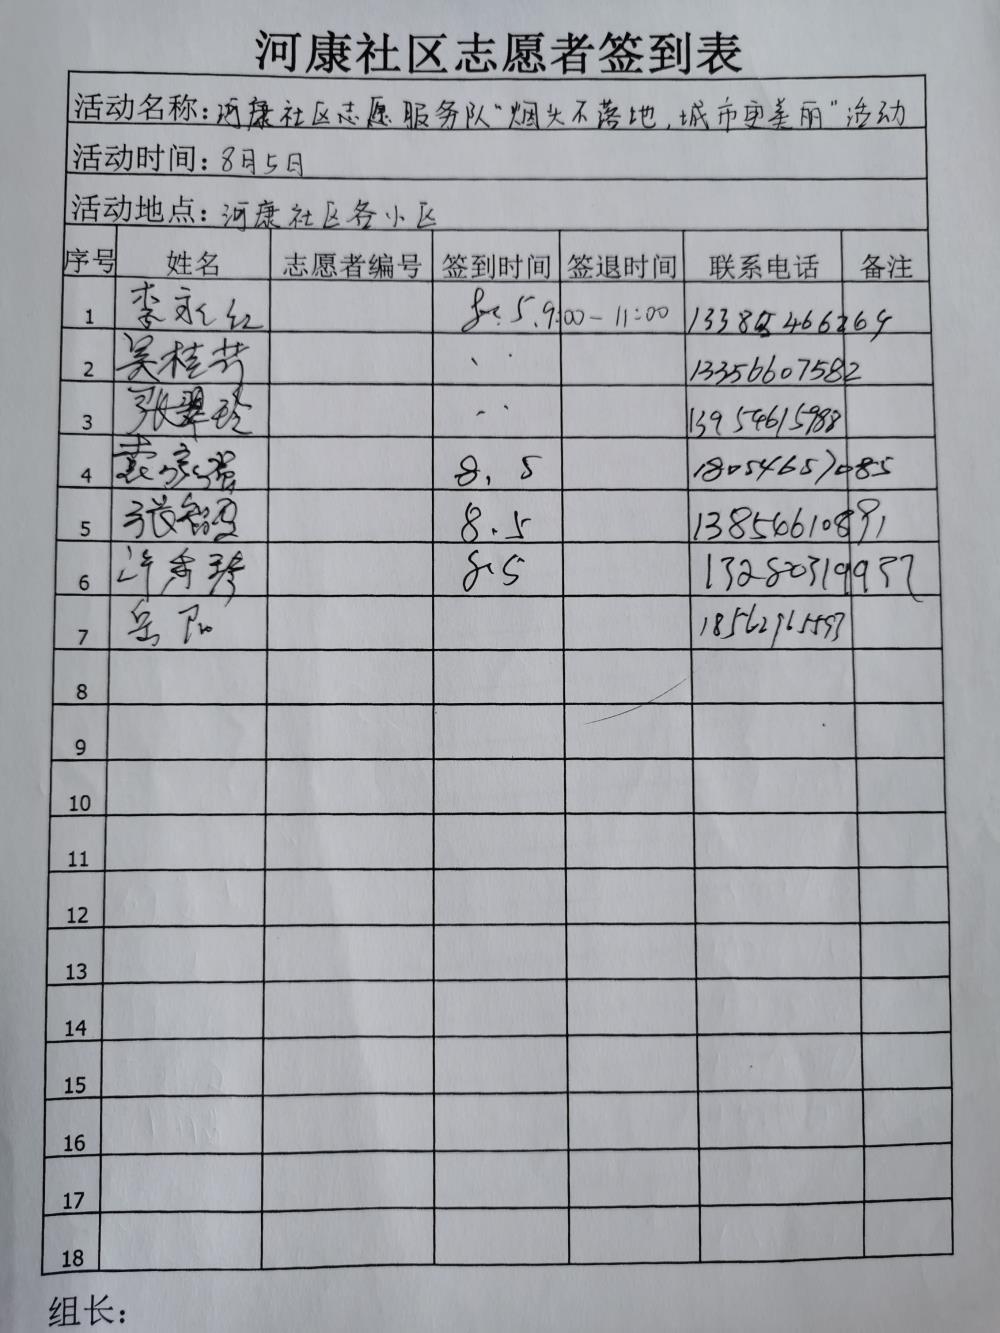 河康社区志愿者签到表
活动名称：河康社区志愿服务队“烟头不落地，城市更美丽”活动
活动时间：8月5日
活动地点：河康社区各小区
序号 姓名 志愿者编号 签到时间 签退时间 联系电话 备注
1 李永红 8.5.9:00-11:00
2 吴桂芹 ‥ 13356607582
3 张翠玲 ‥ 13954615988
4 8.5 18054657085
5 张 8.5 13854610891
6 许秀琴 8.5 13280319937
7 岳阳 18562965593
8
9
10
11
12
13
14
15
16
17
18
组长：